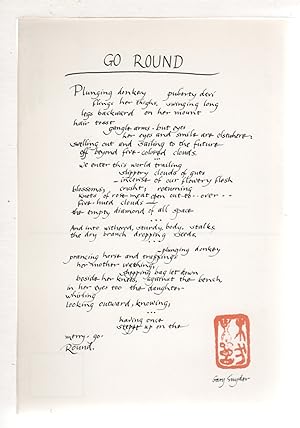 GO ROUND
Plunging donkey puberty devi
flings her thighs, swinging long
legs backward on her mount
hair tossd
gangle arms but eyes
her eyes and smile are elsewhere:
swelling out and sailing to the future
off beyond five-colored clouds.
...
we enter this world trailing
slippery clouds of guts
incense of our flowery flesh
blossoms; crusht; returning
knots of rose meat open out to - over - -
five-hued clouds -
the empty diamond of all space
...
And into withered, sturdy, body, stalks
the dry branch dropping seeds.
...
plunging donkey
prancing horse and trappings
her mother watching,
shopping bag let down
beside her knees, against the bench
in her eyes too the daughter
whirling
looking outward, knowing,
...
having once
steppt up on the
merry-go-
Round.
Gary Snyder